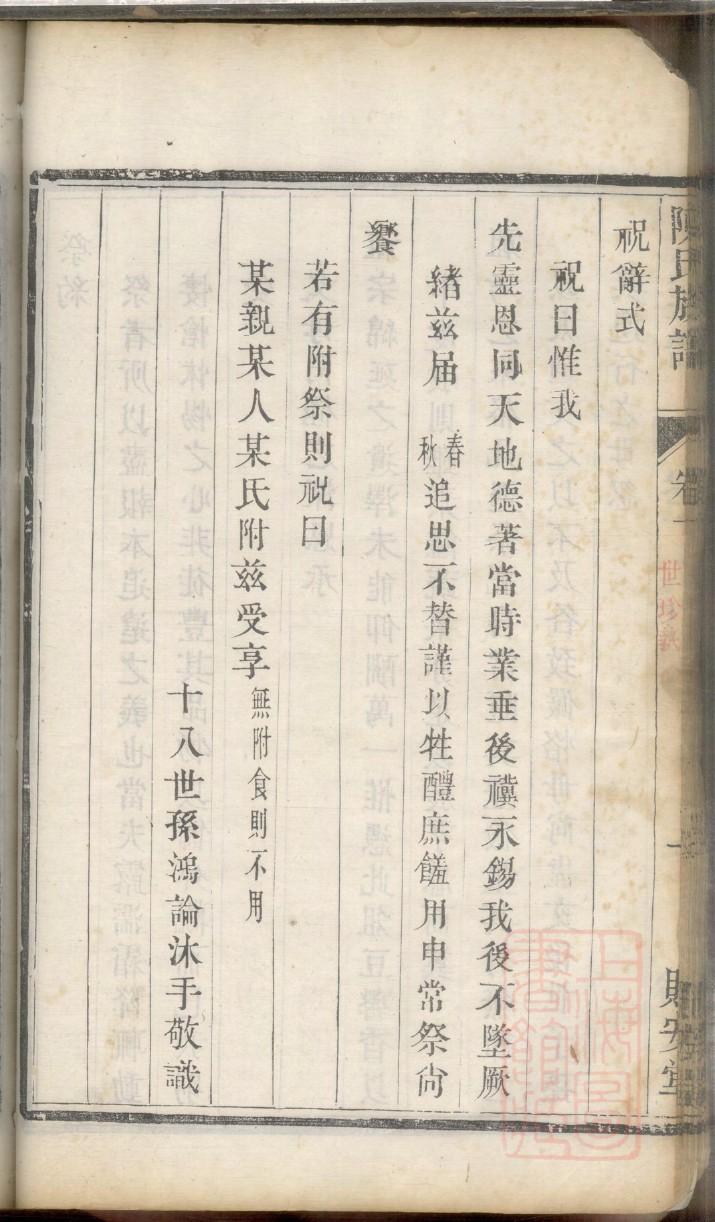 陳氏族譜
卷一
世珍藏
一
貽安堂
祝辭式
祝曰惟我
先靈恩同天地德著當時業垂後禩永錫我後不墜厥
緒茲屆春秋追思不替謹以牲醴庶饈用申常祭尙
饗
若有附祭則祝曰
某親某人某氏附茲受享無附食則不用
十八世孫鴻論沐手敬識